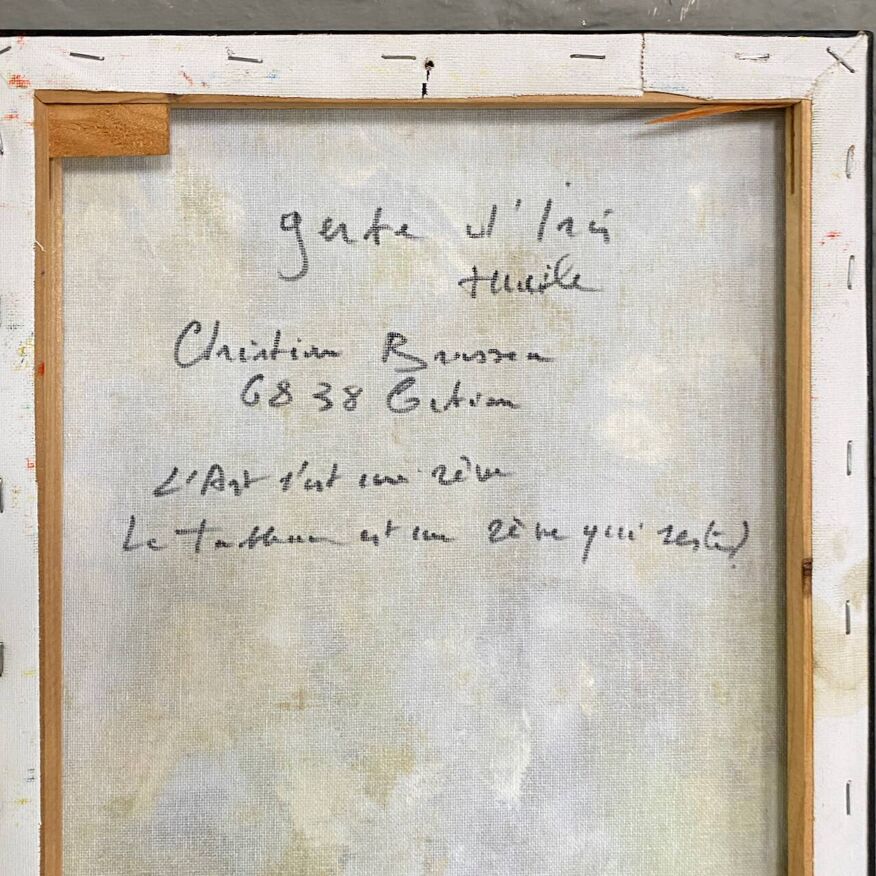 gerbe d'Iris
Huile
Christian
6838 Corbion
L'Art c'est un rêve
Le tableau est un rêve qui reste